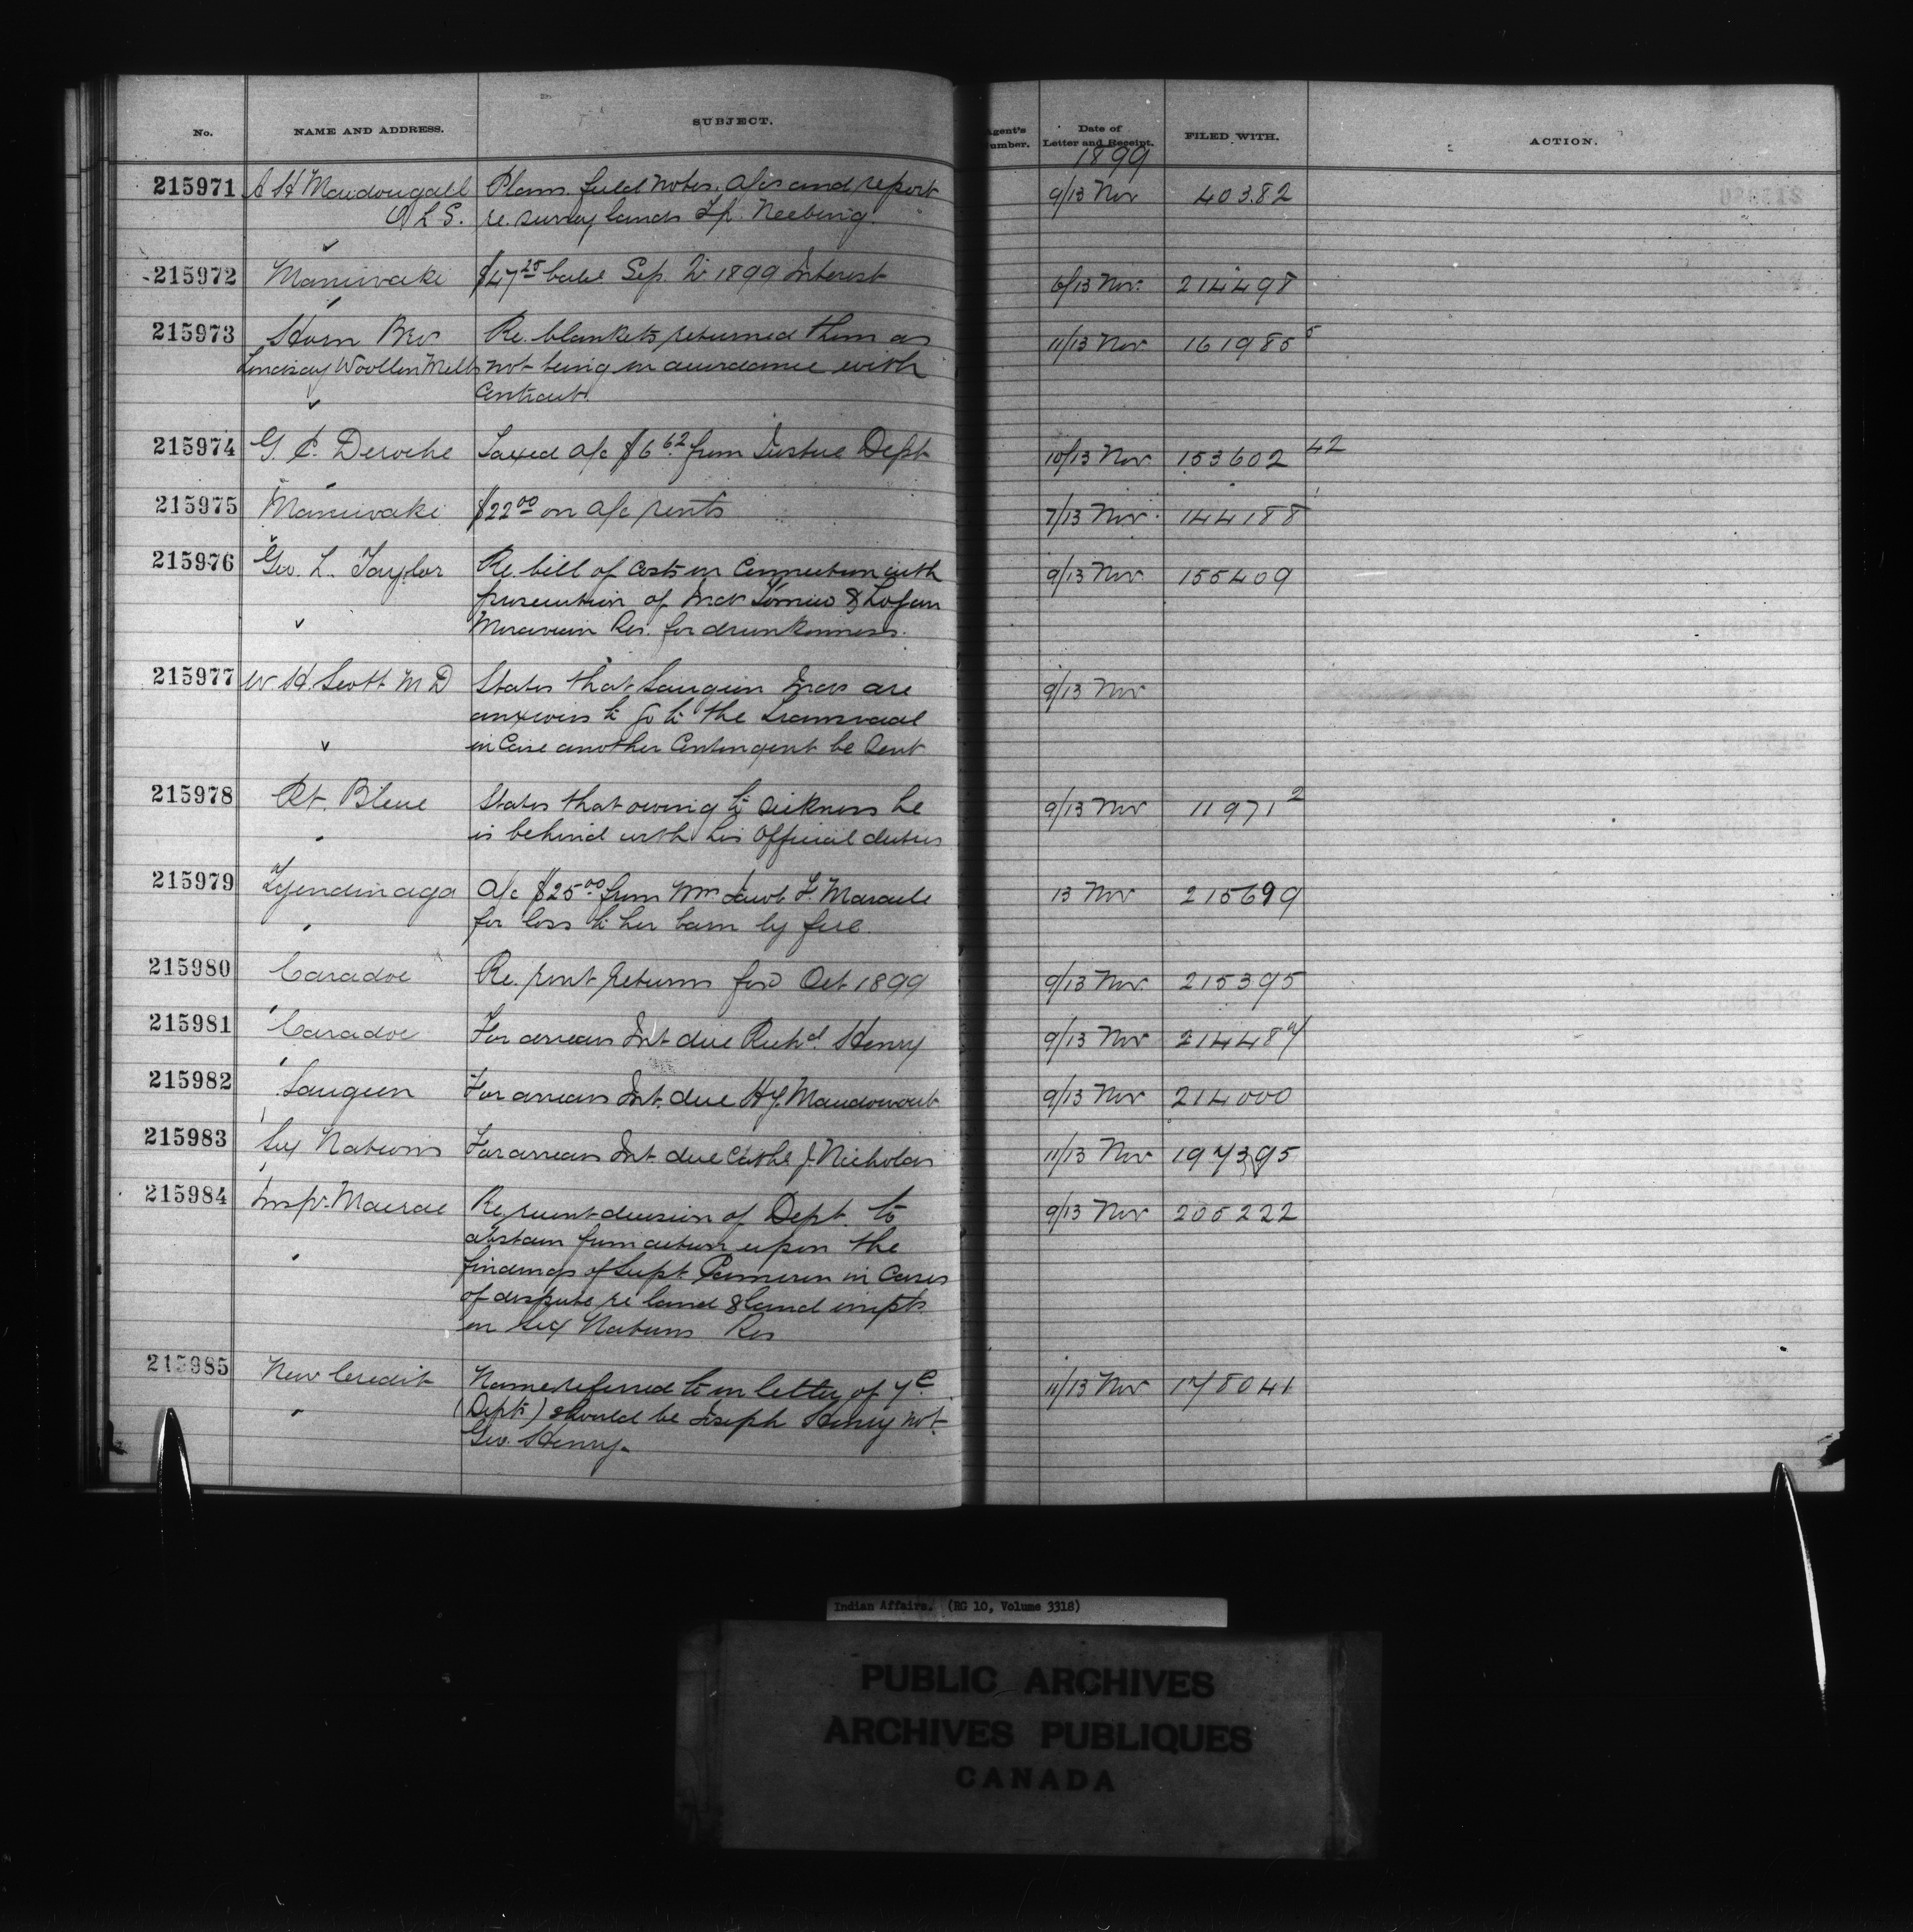 No. NAME AND ADDRESS. SUBJECT. Agent's Number. Date of Letter and Receipt. FILED WITH. ACTION.
1899
215971 A H Macdougall Plans field notes, a/cs and report 9/13 Nov 40382
O L S. re. survey lands Tp. Neebing.
215972 Maniwaki $47 25 bal Sep. Qr 1899 Interest 6/13 Nov. 214498
215973 Horn Bros Re. blankets returned them as 11/13 Nov 161985 5
Lindsay Woollen Mills not being in accordance with
Contract.
215974 G. E. Deroche Taxed a/c $6 62 from Justice Dept 10/13 Nov 153602 42
215975 Maniwaki $22 00 on a/c rents 7/13 Nov 144188
215976 Geo. L. Taylor Re. bill of costs in connection with 9/13 Nov 155409
prosecution of Inds & Logan
Moravian Res. for drunkenness.
215977 W H Scott M D States that Saugeen Inds are 9/13 Nov
anxious to go to the Transvaal
in case another Contingent be sent
215978 Pt. Bleue States that owing to sickness he 9/13 Nov 11971 2
is behind with his official duties
215979 Tyendinaga a/c $25 00 from Mrs Jacob F. Maracle 13 Nov 215699
for loss to her barn by fire.
215980 Caradoc Re. rent returns for Oct 1899 9/13 Nov. 215395
215981 Caradoc For arrears Int due Richd. Henry 9/13 Nov 214484
215982 Saugeen For arrears Int. due Hy. 9/13 Nov 214000
215983 Six Nations For arrears Int due Cathe J. Nicholas 11/13 Nov 197395
215984 Insp. Macrae Re. recent decision of Dept. to 9/13 Nov 205222
abstain from action upon the
findings of Supt. Cameron in cases
of dispute re land & land impts
on Six Nations Res
215985 New Credit Name referred to in letter of 7 C. 11/13 Nov 178041
(Depts) should be Joseph Henry not
Geo. Henry.
Indian Affairs. (RG 10, Volume 3318)
PUBLIC ARCHIVES
ARCHIVES PUBLIQUES
CANADA